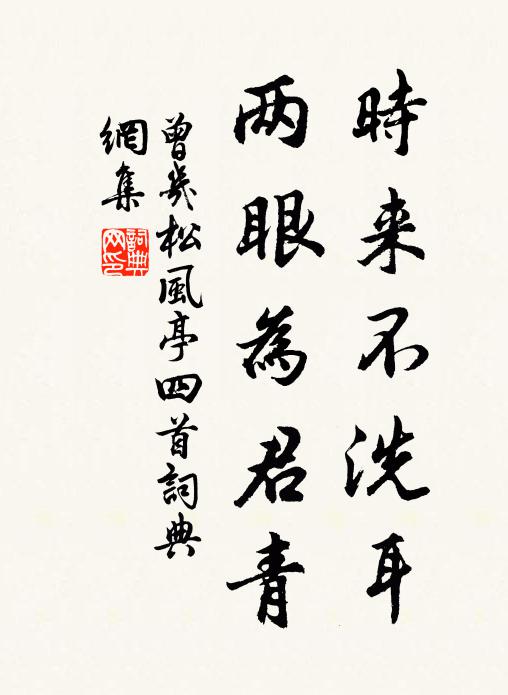 時来不洗耳
两眼為君青
曾几松風亭四首詞典
網集
詞典
网印